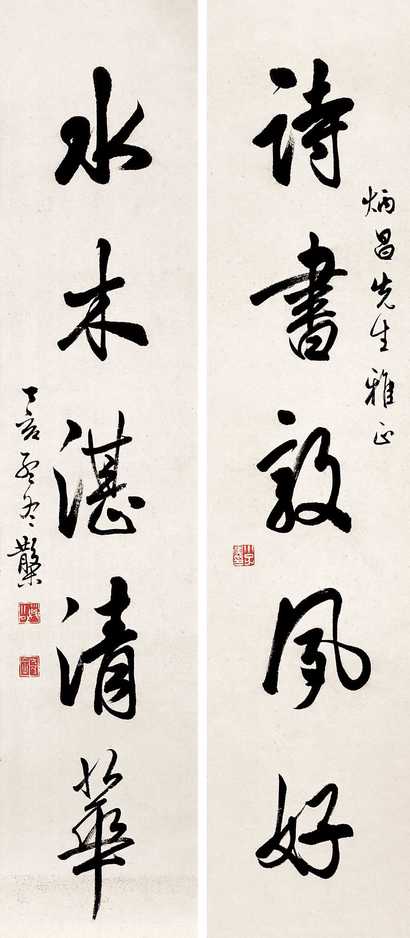 炳昌先生雅正
詩書敦夙好
水木湛清華
丁亥孟冬